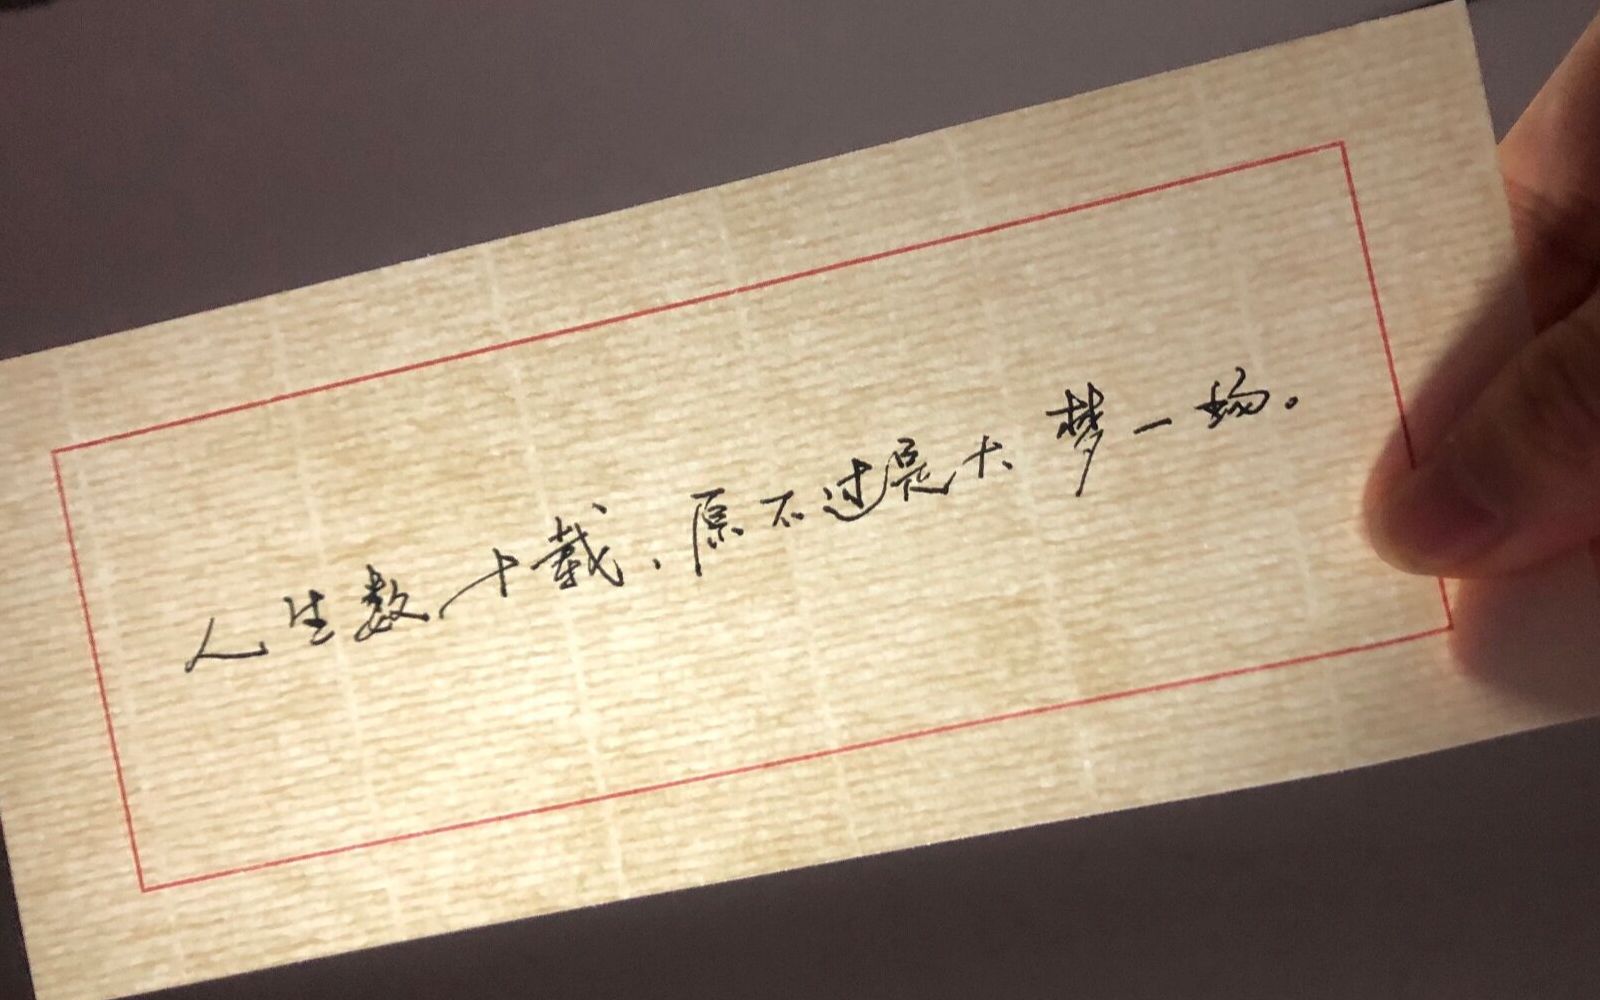 人生数十载，原不过是大梦一场。